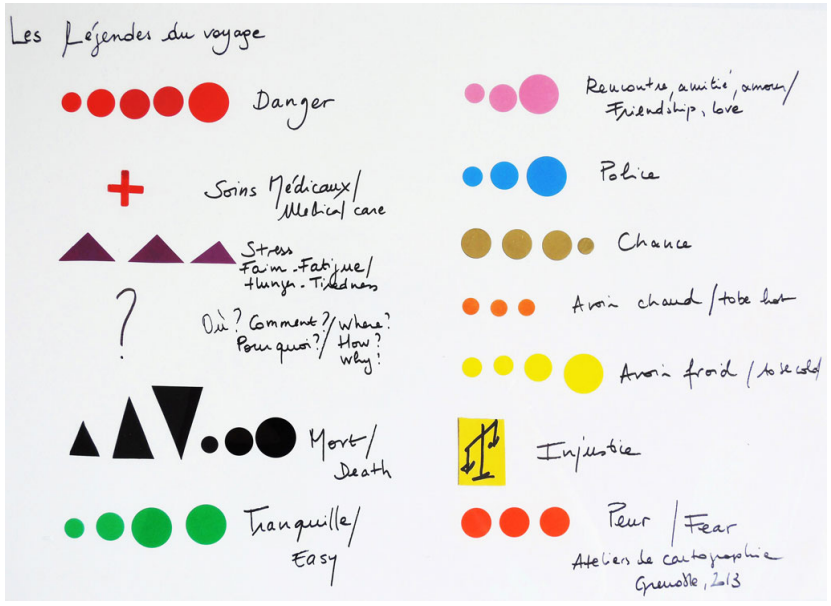 Les Légendes du voyage
Danger
Soins Médicaux/
Medical care
Stress
Faim - Fatigue/
Hunger - Tiredness
?
Où? Comment?/ Where?
Pourquoi?/ How?
Why!
Mort/
Death
Tranquille/
Easy
Rencontre, amitié, amour/
Friendship, love
Police
Chance
Avoir chaud / to be hot
Avoir froid / to be cold
Injustice
Peur / Fear
Ateliers de cartographie
Grenoble, 2013